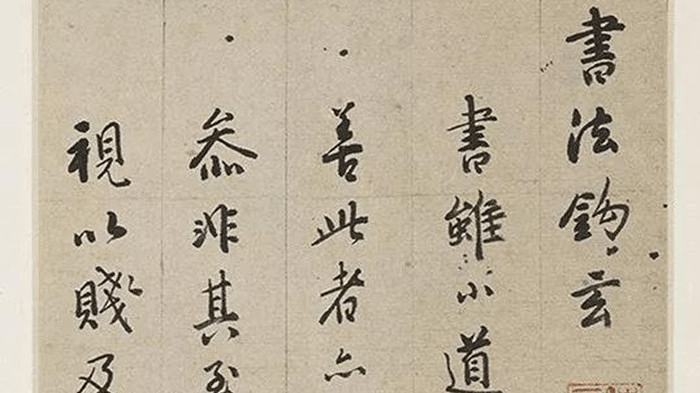 書法鉤玄
書雖小道
善此者亦
叅非其
視以賤及